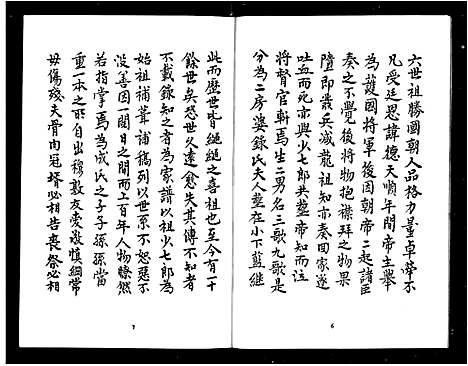 六世祖勝國朝人品格力量卓犖不
凡受廷恩諱德天順年間帝主舉
為護國將軍後因朝帝二起諸臣
奏之不覺後將物抱襟拜之物果
墮即叢兵滅龍祖知亦奏回家遂
吐血而死亦與少七郎共塟帝知而泣
將督官斬焉生二男名三歌九歌是
分為二房婆錄氏夫人塟在小下藍継
6
此而歷世皆縋縋之喜祖也至今有一十
餘世矣恐世久遠愈失其傳不知者
不載錄知之者為家譜以祖少七郎為
始祖補葺誦稿列以世系不怒惡不
没善因一閱日之間而上百年人物瞭然
若指掌焉為成氏之子子孫孫當
重一本之所自出穆敦友愛敬慎綱常
毋傷殘夫骨肉冠婚必相告喪祭必相
7